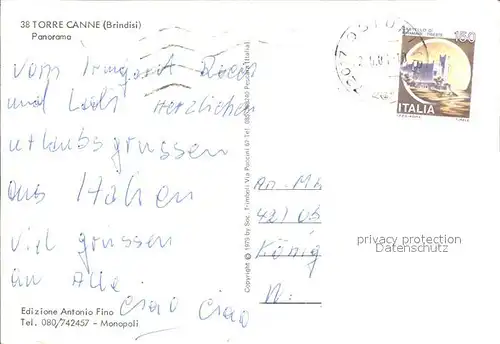 38 TORRE CANNE (Brindisi)
Panorama
von Irmgard
und Herzlichen
urlaubsgrüssen
aus Italien
viel grüssen
an Alle.
Ciao Ciao
Edizione Antonio Fino
Tel. 080/742457 - Monopoli
Copyright © 1975 by Soc. Trimboni Via Puccini 67 Tel. Pescara (Italia)
150
ITALIA
An.
König
privacy protection
Datenschutz